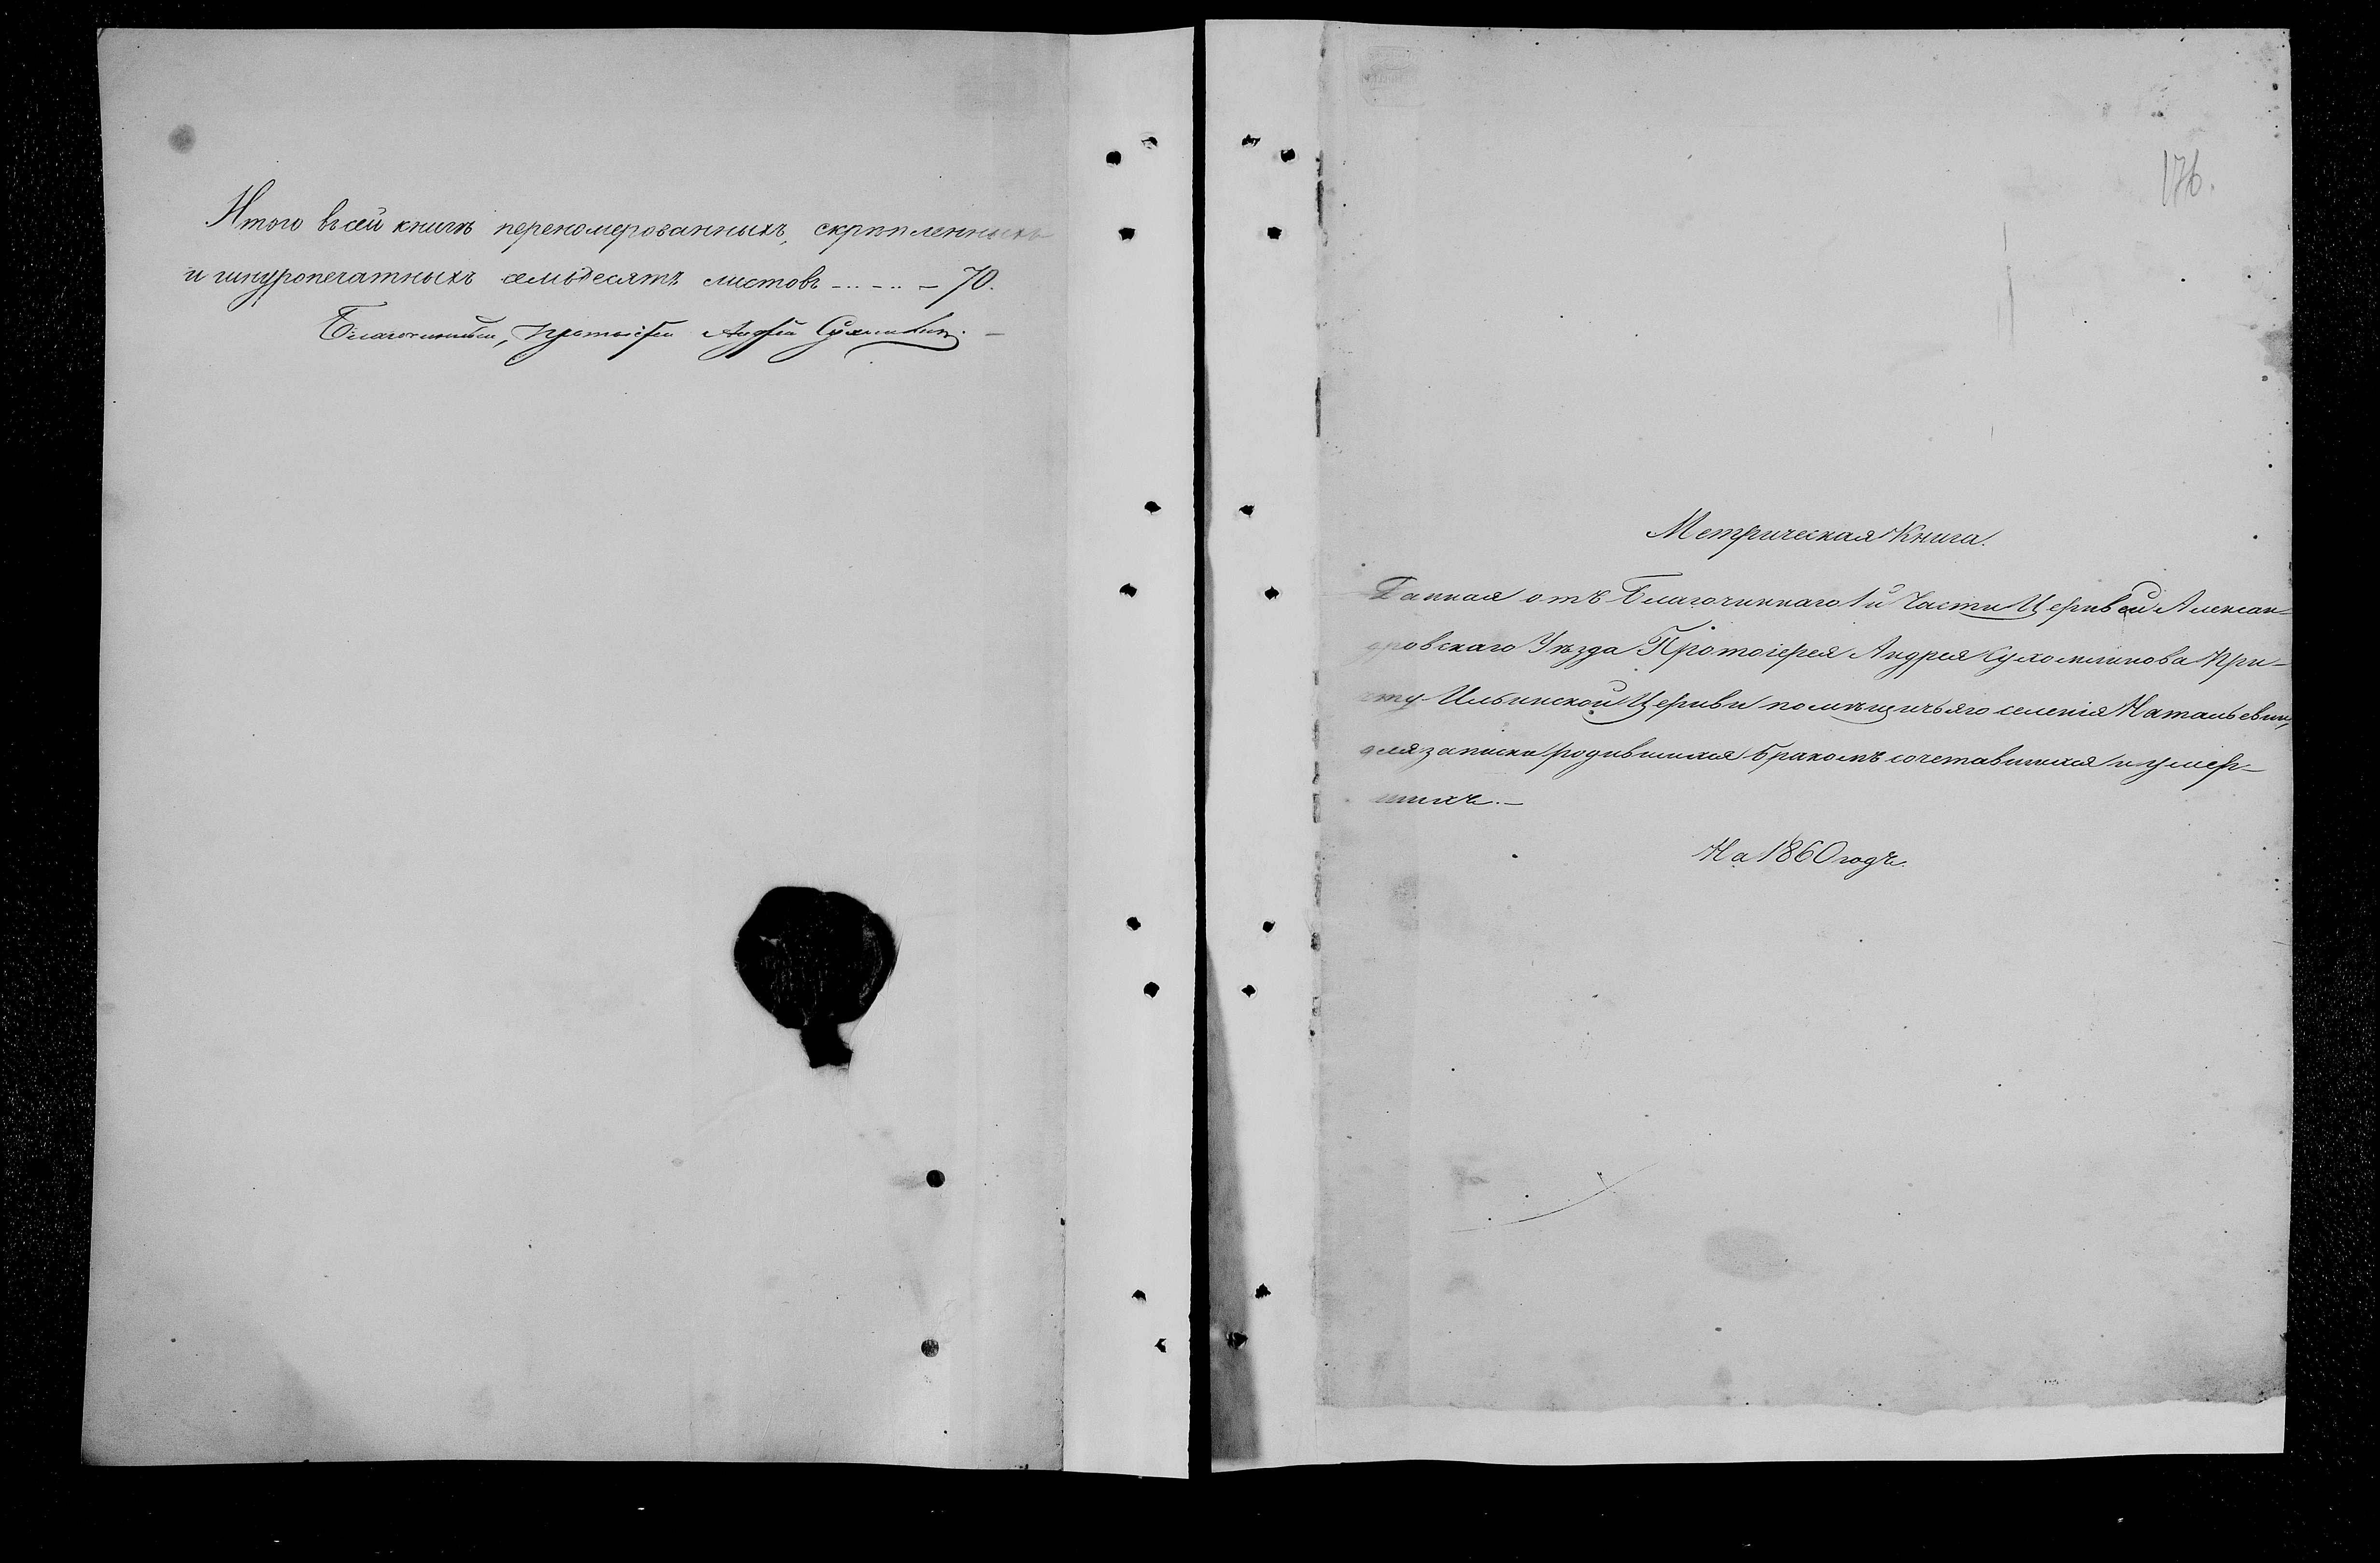 Итого въ сей книгѣ переномерованныхъ, скрѣпленныхъ
и шнуропечатныхъ семьдесятъ листовъ - .. - .. - 70.
Благочинный, Протоіерей Андрей Сухомлинов. -
176.
Метрическая Книга.
Данная отъ Благочиннаго 1й Части Церквей Алексан-
дровскаго Уѣзда Протоіерея Андрея Сухомлинова При-
чту Ильинской Церкви помѣщичьяго селенія Натальевки,
для записки родившихся бракомъ сочетавшихся и умер-
шихъ. -
На 1860 годъ.